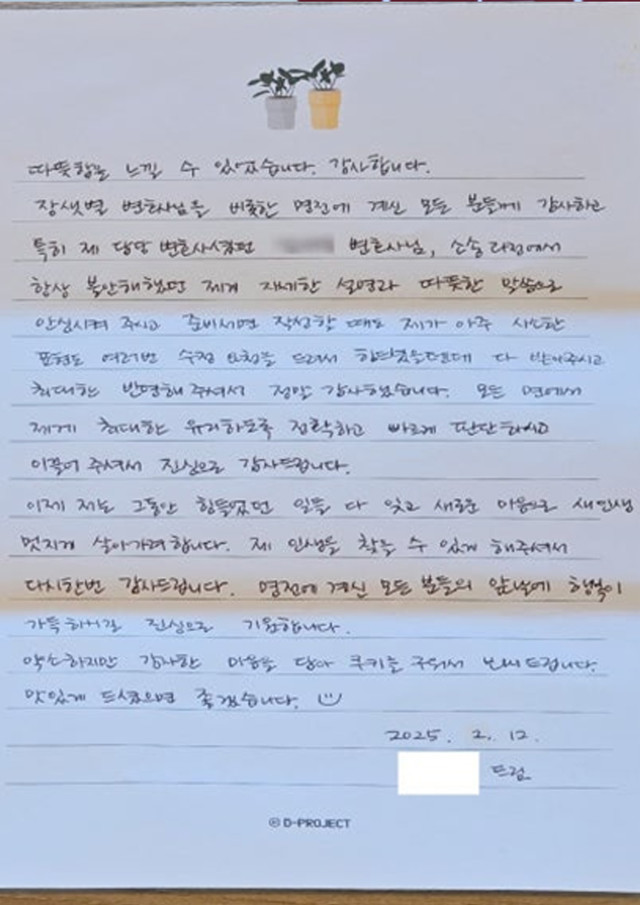 따뜻함을 느낄 수 있었습니다. 감사합니다.
장샛별 변호사님을 비롯한 명전에 계신 모든 분들께 감사하고
특히 제 담당 변호사셨던 변호사님, 소송과정에서
항상 불안해했던 제게 자세한 설명과 따뜻한 말씀으로
안심시켜 주시고 준비서면 작성할 때도 제가 아주 사소한
표현도 여러번 수정 요청을 드려서 힘드셨을텐데 다 받아주시고
최대한 반영해 주셔서 정말 감사했습니다. 모든 면에서
제게 최대한 유리하도록 정확하고 빠르게 판단하시고
이끌어 주셔서 진심으로 감사드립니다.
이제 저는 그동안 힘들었던 일들 다 잊고 새로운 마음으로 새인생
멋지게 살아가려합니다. 제 인생을 찾을 수 있게 해주셔서
다시한번 감사드립니다. 명전에 계신 모든 분들의 앞날에 행복이
가득하시길 진심으로 기원합니다.
약소하지만 감사한 마음을 담아 쿠키를 구워서 보내드립니다.
맛있게 드셨으면 좋겠습니다.
2025. 2. 12.
드림
© D-PROJECT